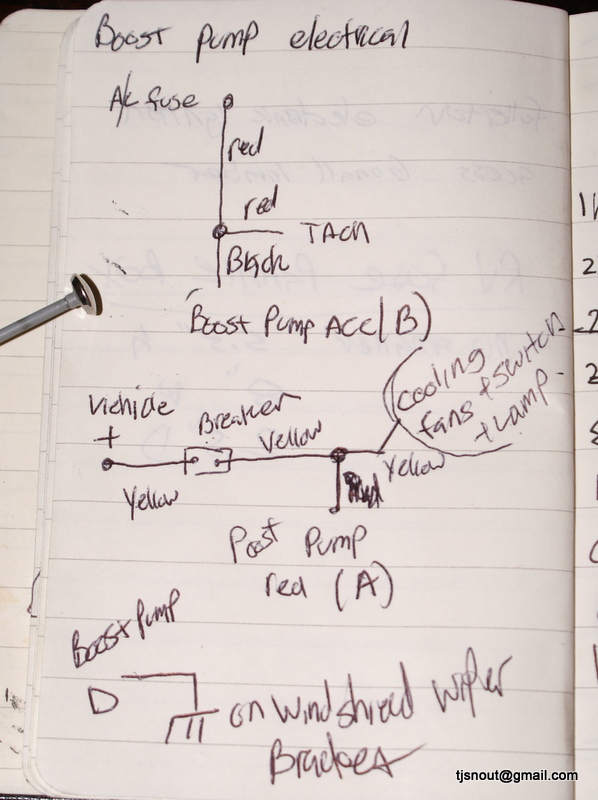 Boost pump electrical
A/c fuse
red
red
TACH
Black
Boost Pump ACC (B)
Vehicle
+
Breaker
Yellow
Yellow
Yellow
cooling
fans + switch
+ Lamp
Post Pump
red (A)
Boost Pump
D
on windshield wiper
Bracket
tjsnout@gmail.com